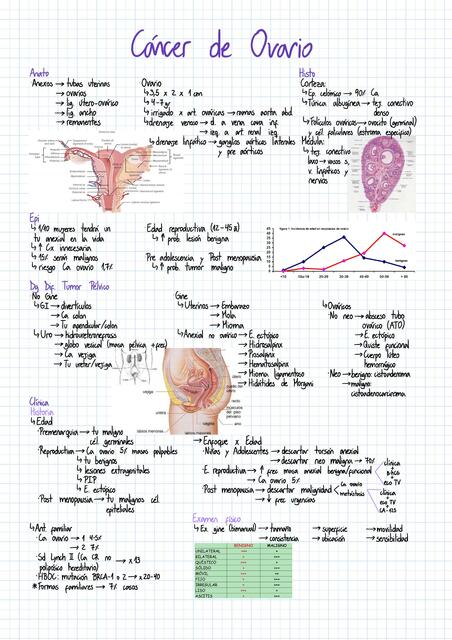 Cáncer de Ovario
Anato
Anexos → tubas uterinas
→ ovarios
→ lig. útero-ovárico
→ lig. ancho
→ remanentes
Ovario
↳ 3,5 x 2 x 1 cm
↳ 4-7 gr
↳ irrigado x art. ováricas → ramas aorta abd.
↳ drenaje venoso → d. a vena cava inf.
→ izq. a art. renal izq.
↳ drenaje linfático → ganglios aórticos laterales
y pre aórticos
Histo
Corteza:
↳ Ep. celómico → 90% Ca
↳ Túnica albugínea → tej. conectivo
denso
↳ Folículos ováricos → ovocito (germinal)
y cél. foliculares (estroma específico)
Médula:
↳ tej. conectivo
laxo → vasos s,
v. linfáticos y
nervios
Epi
↳ 1/10 mujeres tendrá un
tu anexial en la vida
↳ ↑ Cx innecesaria
↳ 15% serán malignos
↳ riesgo Ca ovario 1,7%
Edad reproductiva (12-45a)
↳ ↑ prob. lesión benigna
Pre adolescencia y Post menopausia
↳ ↑ prob. tumor maligno
figura 1. Incidencia de edad en neoplasias de ovario
malignas
benignas
Dg Dif. Tumor Pélvico
No Gine
↳ GI → divertículos
→ Ca colon
→ Tu apendicular/colon
↳ Uro → hidroureteronefrosis
→ globo vesical (masa pélvica + frec)
→ Ca vejiga
→ Tu ureter/vejiga
Gine
↳ Uterinos → Embarazo
→ Mola
→ Mioma
↳ Anexial no ovárico → E. ectópico
→ Hidrosalpinx
→ Piosalpinx
→ Hematosalpinx
→ Mioma ligamentoso
→ Hidátides de Morgani
↳ Ováricos
No neo → absceso tubo
ovárico (ATO)
→ E. ectópico
→ Quiste funcional
→ Cuerpo lúteo
hemorrágico
Neo → benigno: cistoadenoma
→ maligno:
cistoadenocarcinoma
vejiga
uréter
recto
músculos
del piso
pelviano
vagina
ano
labios menores
labios mayores
Clínica
Historia
↳ Edad
· Premenarquia → tu maligno
cél. germinales
· Reproductiva → Ca ovario 5% masas palpables
↳ tu benignos
↳ lesiones extragenitales
↳ PIP
↳ E. ectópico
· Post menopausia → tu malignos cél.
epiteliales
→ Enfoque x Edad
· Niñas y Adolescentes → descartar torsión anexial
→ descartar neo maligna → 70%
· E. reproductiva → ↑ frec masa anexial benigna/funcional
→ Ca ovario 5%
· Post menopausia → descartar malignidad
→ ↓ frec urgencias
Ca ovario
metástasis
clínica
eco TV
clínica
eco TV
CA-125
↳ Ant. familiar
· Ca ovario → 1 4-5%
→ 2 7%
· Sd Lynch II (Ca CR no
polipósico hereditario) → x 13
· HBOC: mutación BRCA-1 o 2 → x 20-40
* Formas familiares → 7% casos
Examen físico
↳ Ex gine (bimanual) → tamaño → superficie → movilidad
→ consistencia → ubicación → sensibilidad
BENIGNO MALIGNO
UNILATERAL +++ +
BILATERAL + +++
QUÍSTICO +++ +
SÓLIDO + +++
MÓVIL +++ ++
FIJO + +++
IRREGULAR + +++
LISO +++ +
ASCITIS + +++